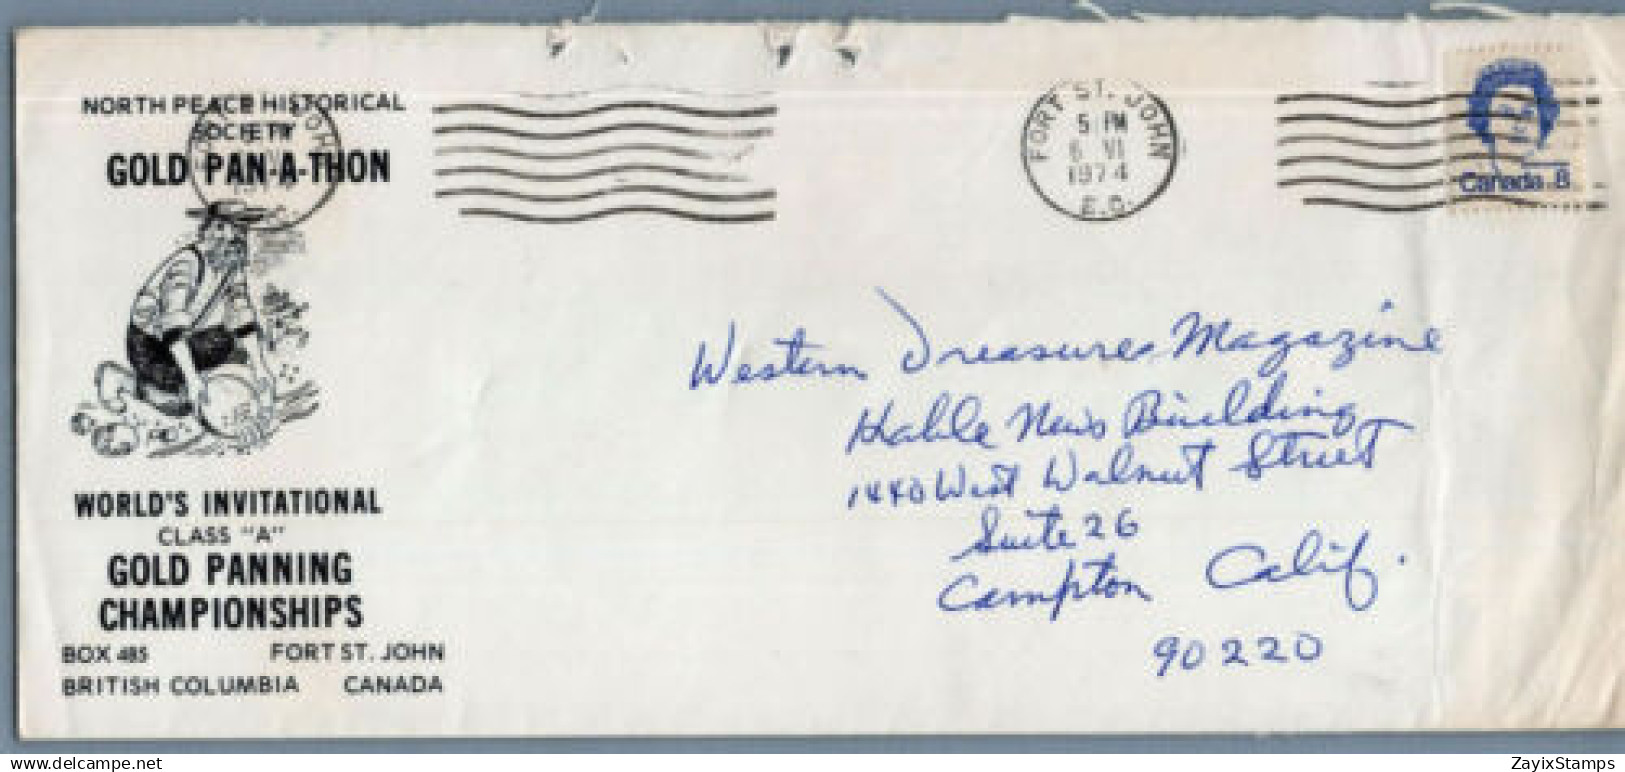 NORTH PEACE HISTORICAL
SOCIETY
GOLD PAN-A-THON
WORLD'S INVITATIONAL
CLASS "A"
GOLD PANNING
CHAMPIONSHIPS
BOX 485 FORT ST. JOHN
BRITISH COLUMBIA CANADA
FORT ST. JOHN
5 PM
6 VI
1974
Canada 8
Western Treasures Magazine
News Building
1440 West Walnut Street
Suite 26
Compton Calif.
90220
delcampe.net
ZayixStamps